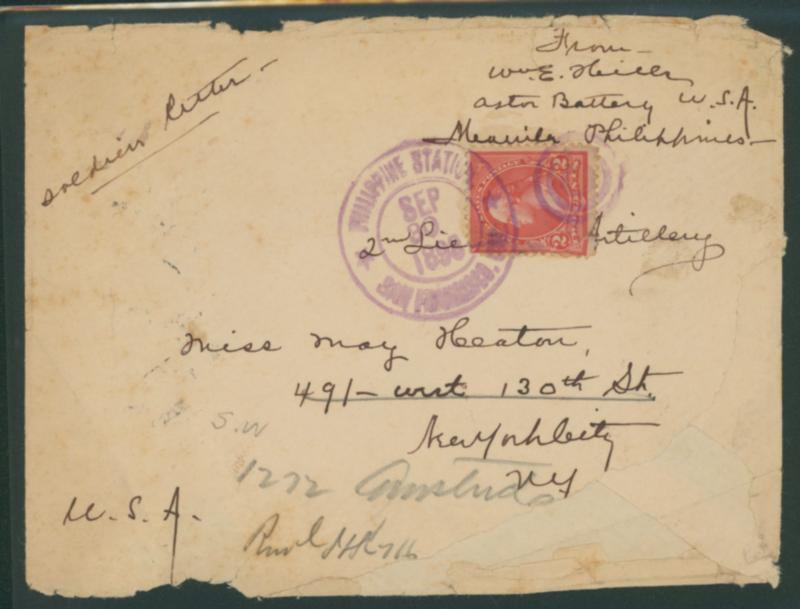 From
Wm. E. Hiller
Astor Battery U.S.A.
Manila Philippines
Soldiers Letter
PHILIPPINE STATION
SEP
1898
SAN FRANCISCO,
2
2
2nd Lieu Artillery
Miss May Heaton,
491 – west 130th St.
New York City
NY
S.W
1272 Amsterda
U. S. A.